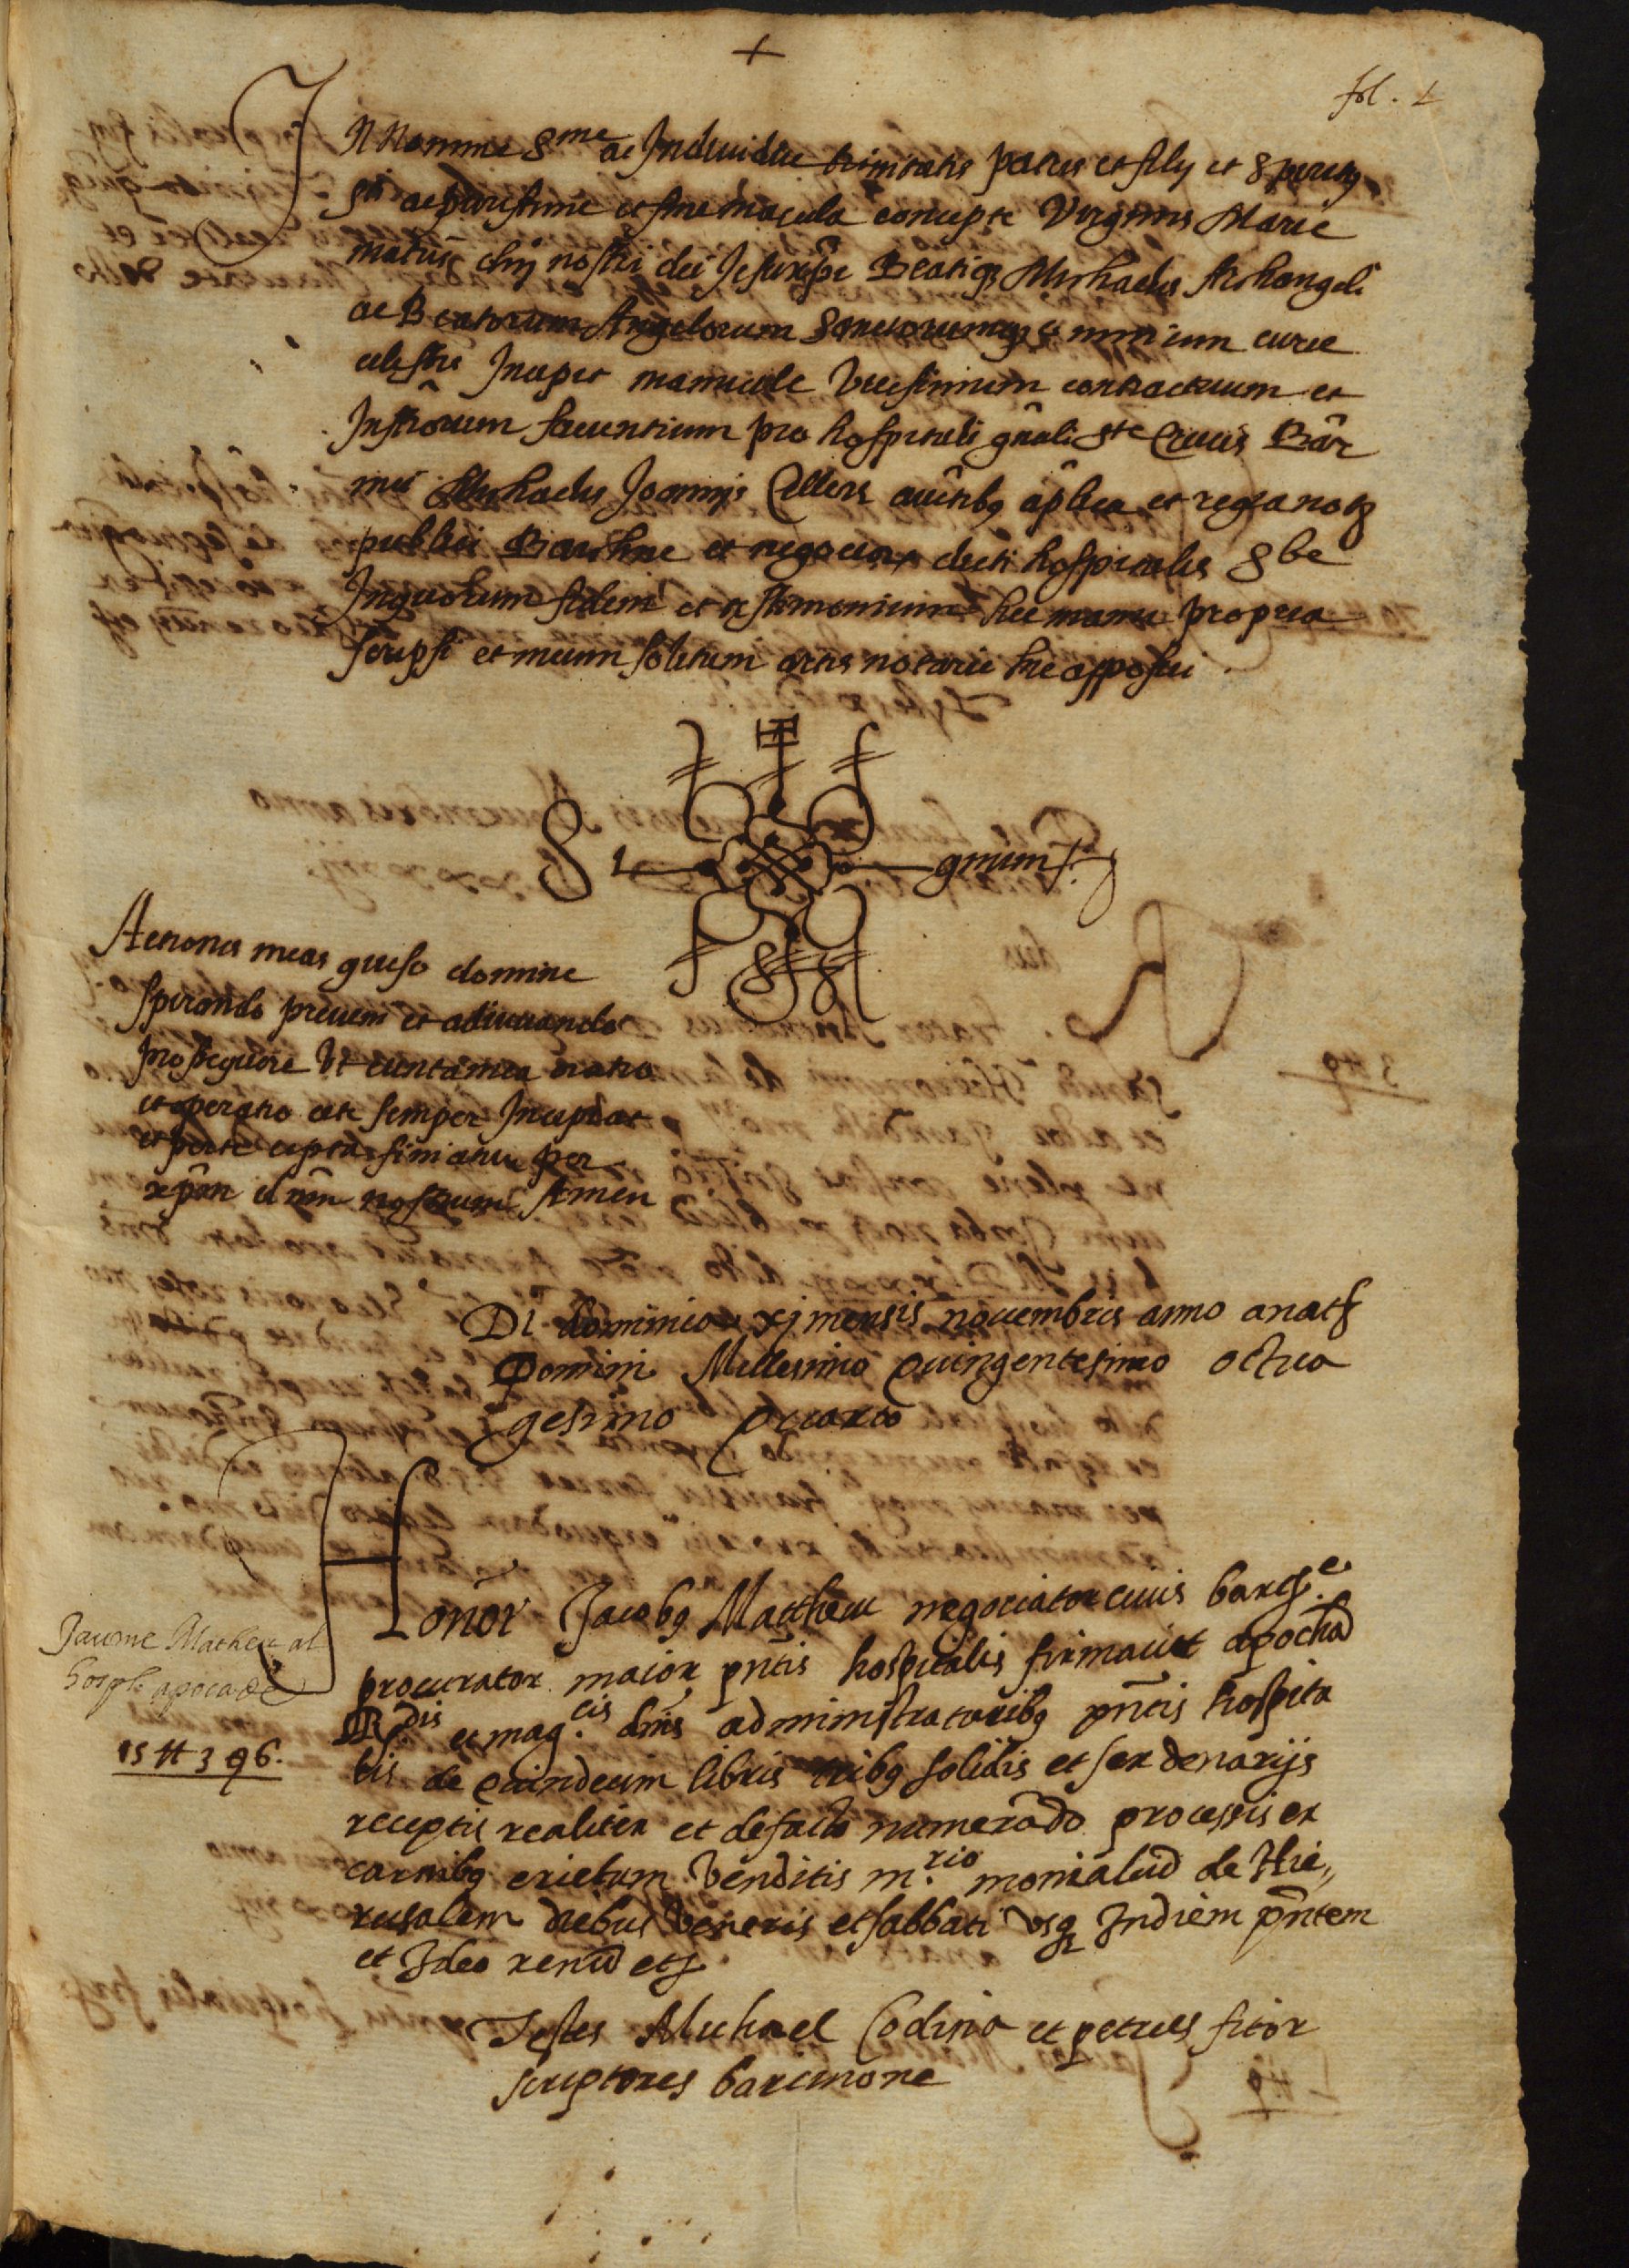 +
fol. 1
In Nomine Sme ac Indiuidue trinitatis patris et filij et Speritus
Sti ac purissime et sine macula concepte Virginis Marie
matris dnj nostri dei Jesuxpi Beatiqz Michaelis Archangeli
ac Beatorum Angelorum Sanctorumqz omnium curie
celestis Incipit manuale Vicesimum contractuum et
Instrorum facientium pro hospitali gnali Ste Crucis Bar
mei Michaelis Joannis Cellers auctibus aplica et regia notz
publici Barchne et negocior dicti hospitalis Sbe
Inquorum fidem et testimonium hec manu propria
scripsi et meum solitum artis notarie hic apposui
S i gnum.
Actiones meas queso domine
spirando preueni et adiuuando
prosequere Vt cuncta mea oratio
et operatio a te semper Incipiat
et per te cepta finiatur per
xpm dnm nostrum Amen
Die dominico xj mensis nouembris anno anatz
Domini Millesimo Quingentesimo octua
gesimo Quarto
Honor Jacobus Matheu negociator ciuis barcne
procurator maior pntis hospitalis firmauit apocha
Rdis et mag.cis dnis administratoribus pntis hospita
lis de Quindecim libris tribus solidis et sex denarijs
receptis realiter et defacto numerado processis ex
carnibus erietum Venditis m.rio monialiu de Hie,,
rusalem diebus Veneris et sabbati Vsqz Indiem pntem
et Ideo renu etc
Jaume Matheu al
hospl apoca de
15 ₶ 3 ꝯ 6.
Testes Michael Codina et petrus fitor
scriptores barcinone